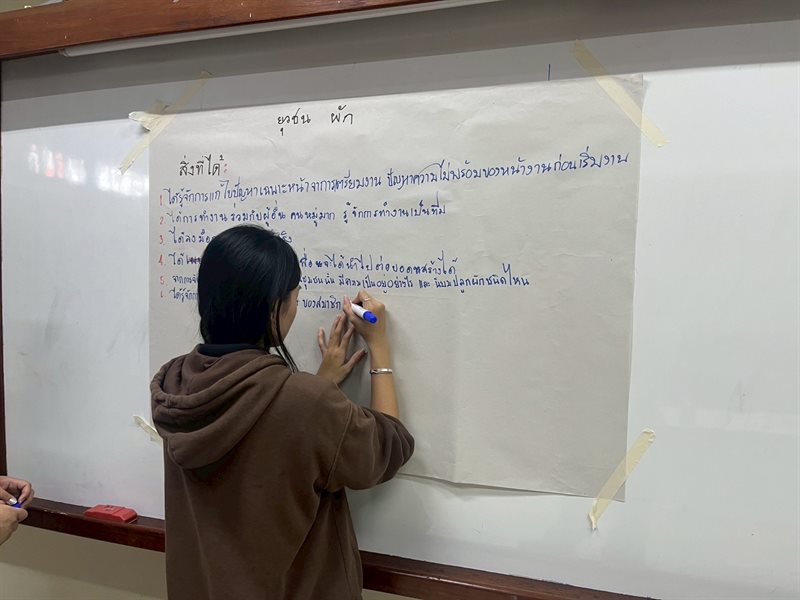 ยุวชน ผัก
สิ่งที่ได้:
1. ได้รู้จักการแก้ไขปัญหาเฉพาะหน้าจากการเตรียมงาน ปัญหาความไม่พร้อมของหน้างานก่อนเริ่มงาน
2. ได้การทำงานร่วมกับผู้อื่น คนหมู่มาก รู้จักการทำงานเป็นทีม
3. ได้ลงมือ
4. ได้ เพื่อนจะได้นำไปต่อยอดสร้างได้
5. ชุมชนนั้น มีความเป็นอยู่อย่างไร และ นิยมปลูกผักชนิดไหน
6. ได้รู้จัก ของสมาชิก